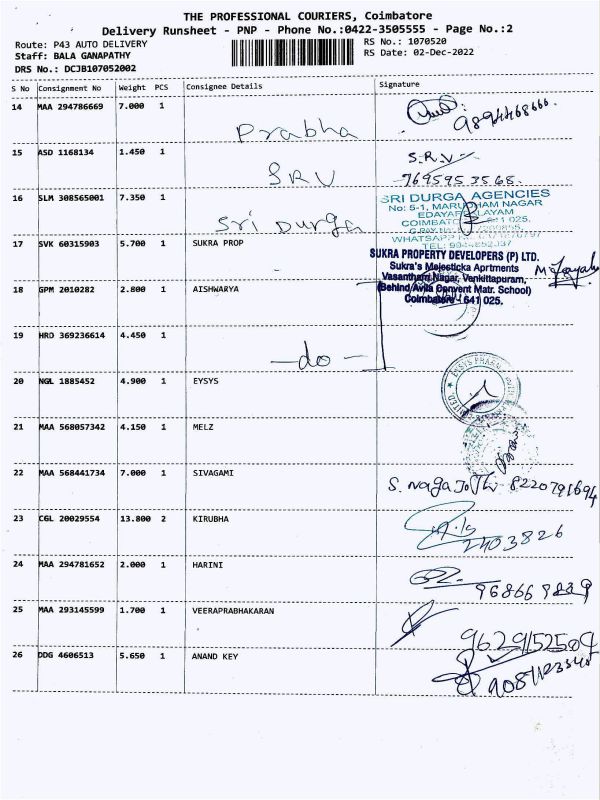 THE PROFESSIONAL COURIERS, Coimbatore
Delivery Runsheet - PNP - Phone No.:0422-3505555 - Page No.:2
Route: P43 AUTO DELIVERY RS No.: 1070520
Staff: BALA GANAPATHY RS Date: 02-Dec-2022
DRS No.: DCJB107052002
S No Consignment No Weight PCS Consignee Details Signature
14 MAA 294786669 7.000 1
Prabha 9894468666.
15 ASD 1168134 1.450 1 S.R.V
SRV 7695953568.
16 SLM 308565001 7.350 1 SRI DURGA AGENCIES
No: 5-1, MARUDHAM NAGAR
Sri Durga EDAYARPALAYAM
COIMBATORE 641 025.
WHATSAPP
17 SVK 60315903 5.700 1 SUKRA PROP
SUKRA PROPERTY DEVELOPERS (P) LTD.
Sukra's Majesticka Aprtments
Vasantham Nagar, Venkittapuram,
18 GPM 2010282 2.800 1 AISHWARYA (Behind Avila Convent Matr. School)
Coimbatore - 641 025.
19 HRD 369236614 4.450 1
-do-
20 NGL 1885452 4.900 1 EYSYS
21 MAA 568057342 4.150 1 MELZ
22 MAA 568441734 7.000 1 SIVAGAMI
S. Naga Jothi 8220791694
23 CGL 20029554 13.800 2 KIRUBHA
2403826
24 MAA 294781652 2.000 1 HARINI
25 MAA 293145599 1.700 1 VEERAPRABHAKARAN
9629152504
26 DDG 4606513 5.650 1 ANAND KEY